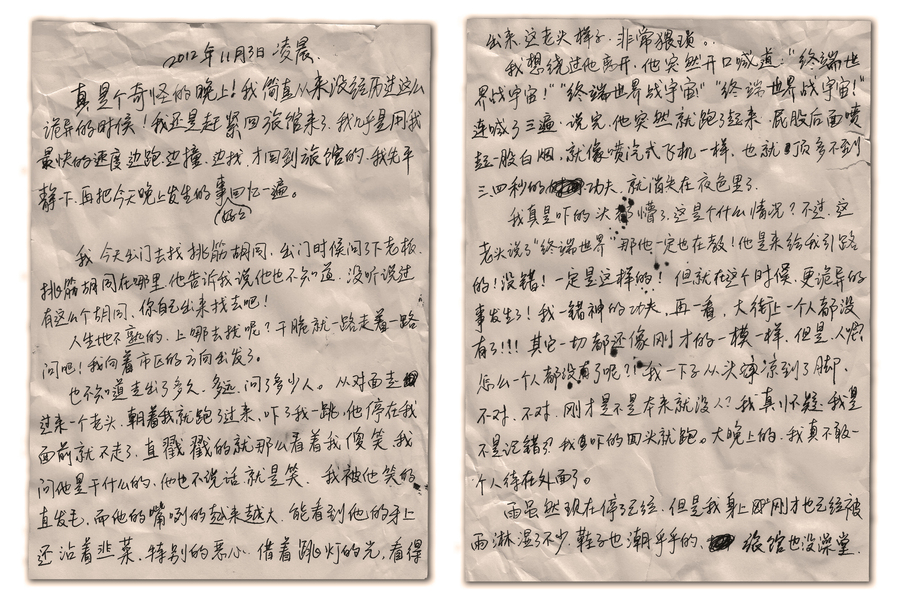 2012年11月3日 凌晨.
真是个奇怪的晚上!我简直从来没经历过这么
诡异的时候!我还是赶紧回旅馆来了.我几乎是用我
最快的速度边跑.边撞.边找.才回到旅馆的.我先平
静一下.再把今天晚上发生的事回忆一遍。
(好吧)
我今天出门去找挑筋胡同.出门时候问了下老板.
挑筋胡同在哪里.他告诉我说他也不知道.没听说过
有这么个胡同.你自己出来找去吧!
人生地不熟的.上哪去找呢?干脆就一路走着一路
问吧!我向着市区的方向出发了。
也不知道走出了多久.多远.问了多少人。从对面走
过来一个老头.朝着我就跑了过来.吓了我一跳.他停在我
面前就不走了.直戳戳的就那么看着我傻笑.我
问他是干什么的.他也不说话就是笑. 我被他笑的
直发毛.而他的嘴咧的越来越大.能看到他的牙上
还沾着韭菜.特别的恶心.借着路灯的光,看得
出来.这老头样子.非常猥琐。.
我想绕过他离开.他突然开口喊道:"终端世
界战宇宙!""终端世界战宇宙""终端世界战宇宙!"
连喊了三遍.说完.他突然就跑了起来.屁股后面喷
起一股白烟.就像喷汽式飞机一样.也就顶多不到
三.四秒的功夫.就消失在夜色里了.
我真是吓的头都懵了.这是个什么情况?不过.这
老头说了"终端世界"那他一定也在教!他是来给我引路
的!没错!一定是这样的!但就在这个时候.更诡异的
事发生了!我一错神的功夫.再一看.大街上一个人都没
有了!!!其它一切都还像刚才的一模一样.但是.人呢
怎么一个人都没有了呢?!我一下子从头凉到了脚.
不对.不对.刚才是不是本来就没人?我真怀疑.我是
不是记错了?我真吓的回头就跑。大晚上的.我真不敢一
个人待在外面了。
雨虽然现在停了已经.但是我身上刚才也已经被
雨淋湿了不少.鞋子也潮乎乎的.旅馆也没澡堂.